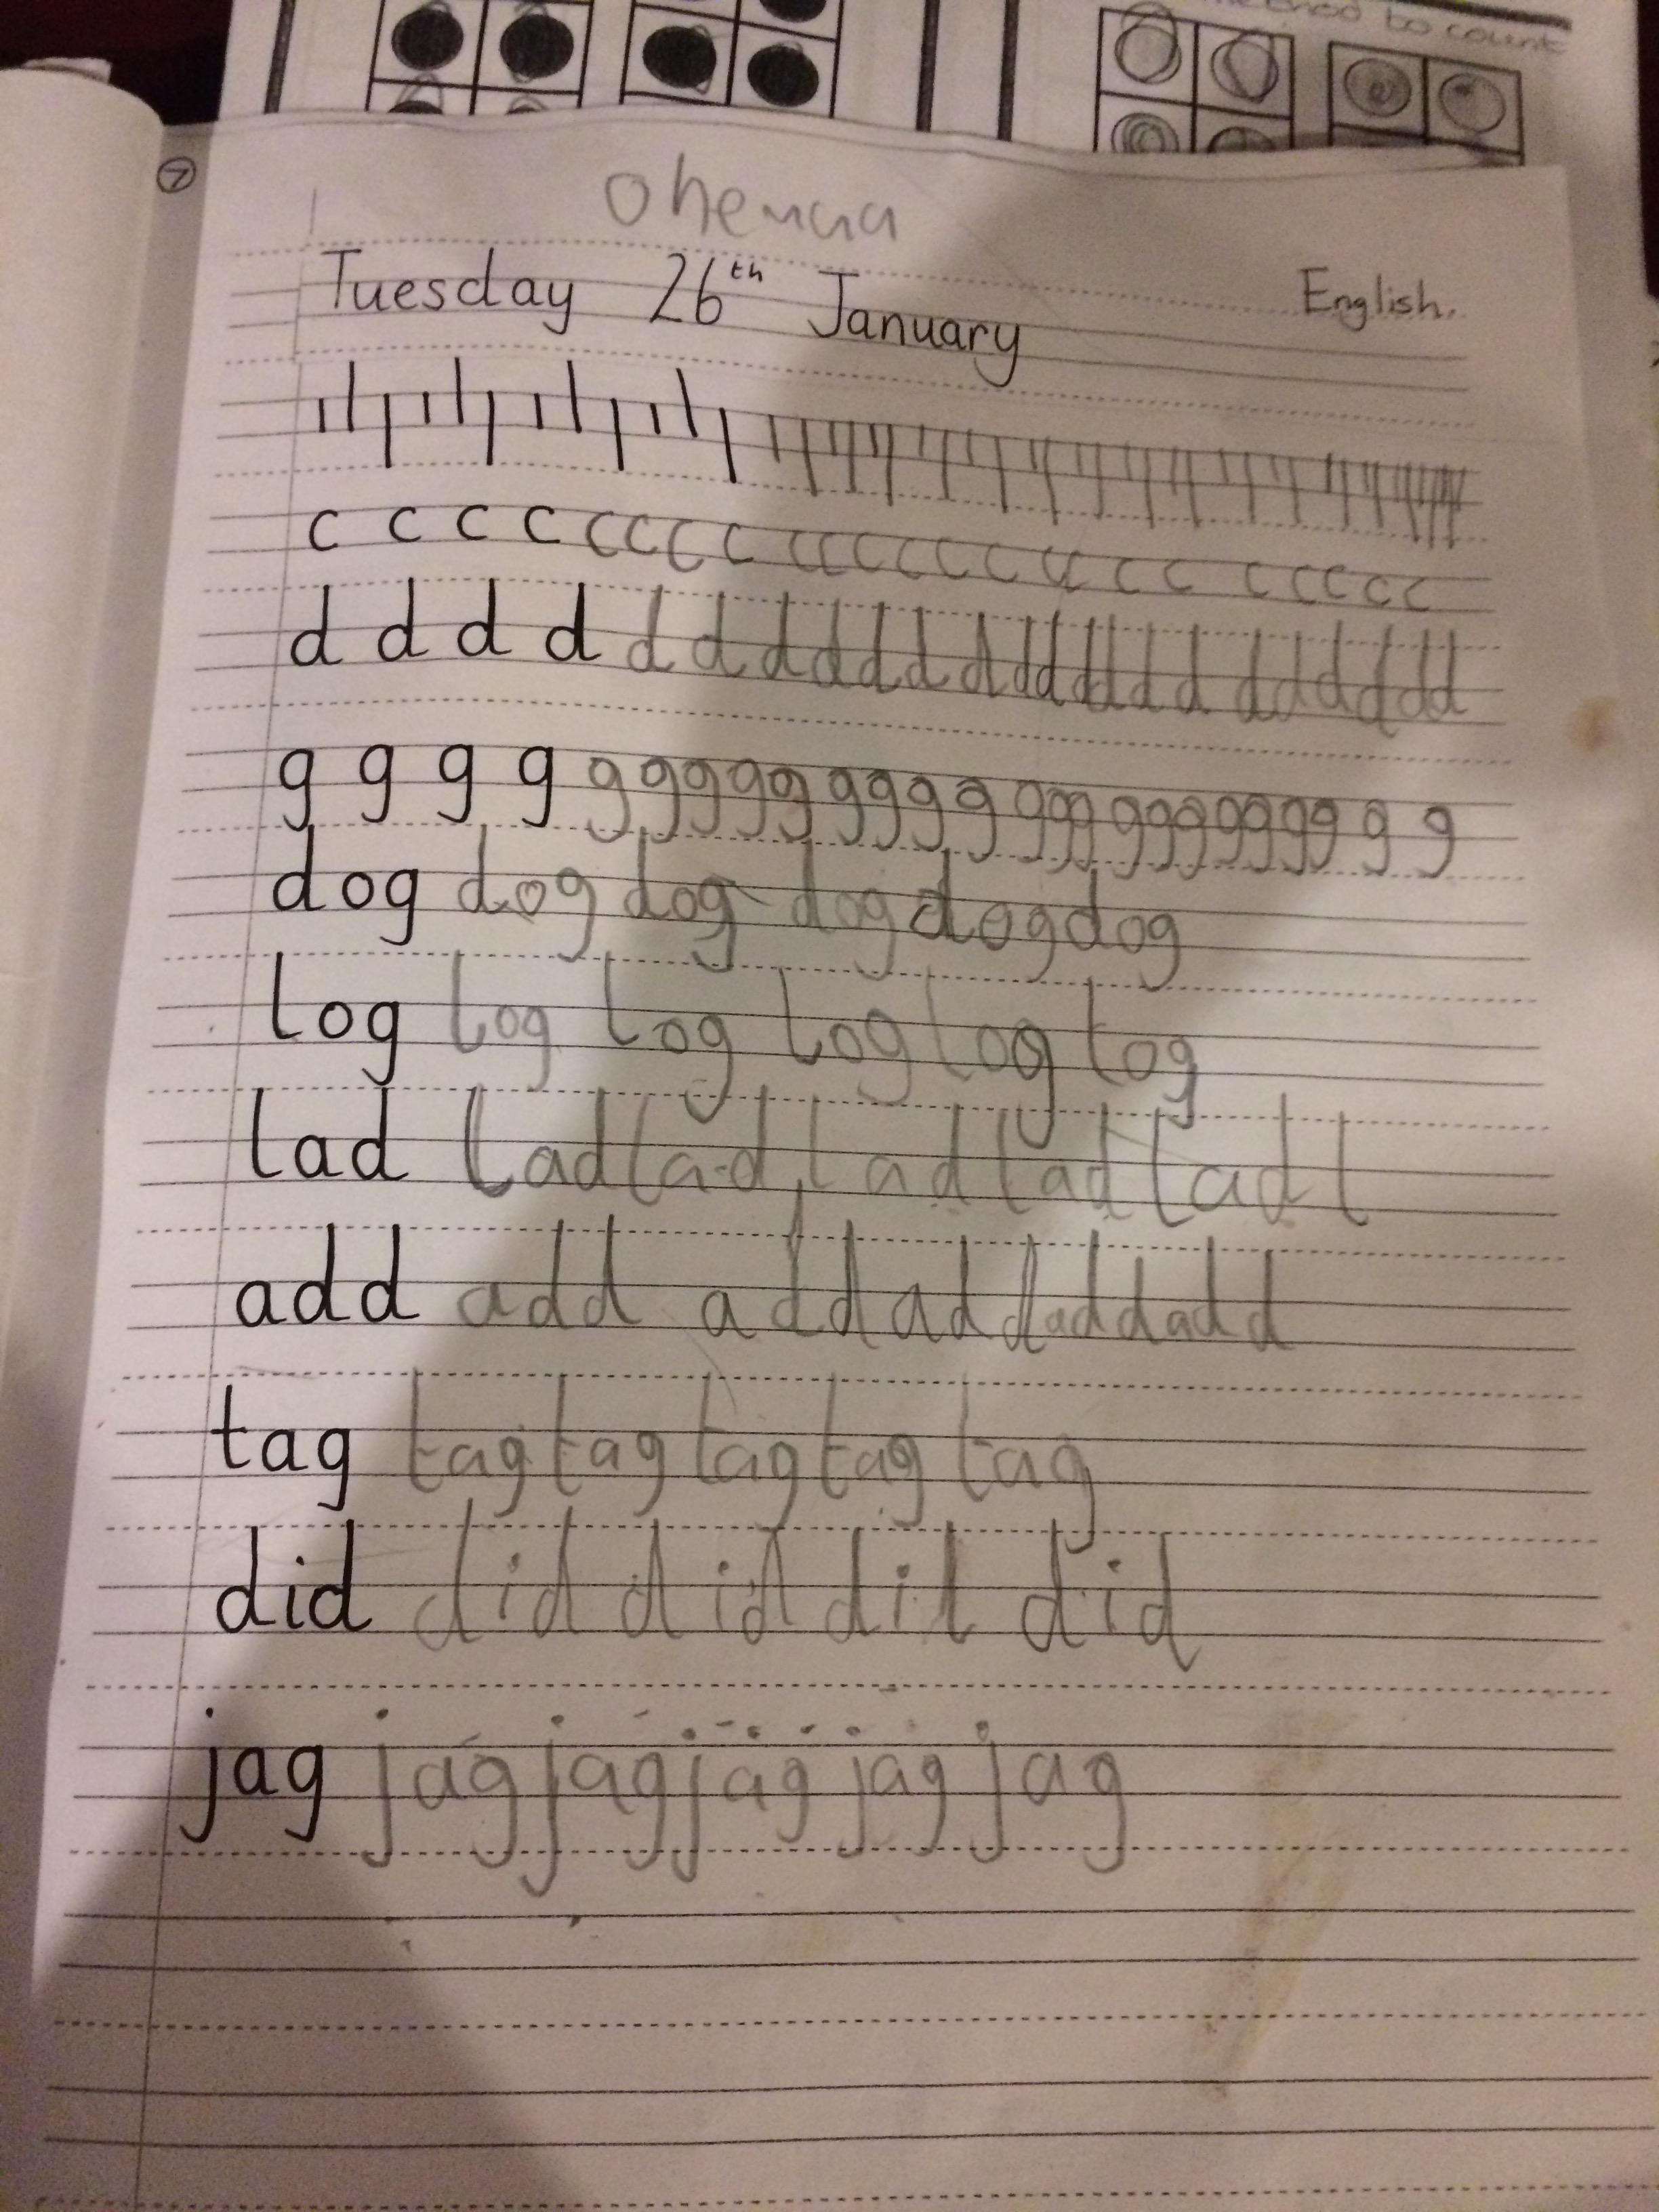 method to count
7
ohemaa
Tuesday 26th January English.
c c c c c c c c c c c c c c c c c c c c c c c c
d d d d d d d d d d d d d d d d d d d d d d d d
g g g g g g g g g g g g g g g g g g g g g g g g g
dog dog dog dog dog dog
log log log log log log
lad lad lad lad lad lad l
add add add add add add
tag tag tag tag tag tag
did did did did did
jag jag jag jag jag jag